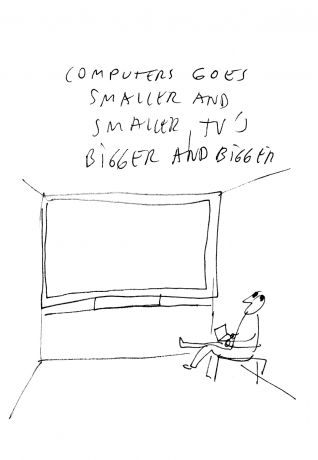 COMPUTERS GOES
SMALLER AND
SMALLER, TV'S
BIGGER AND BIGGER